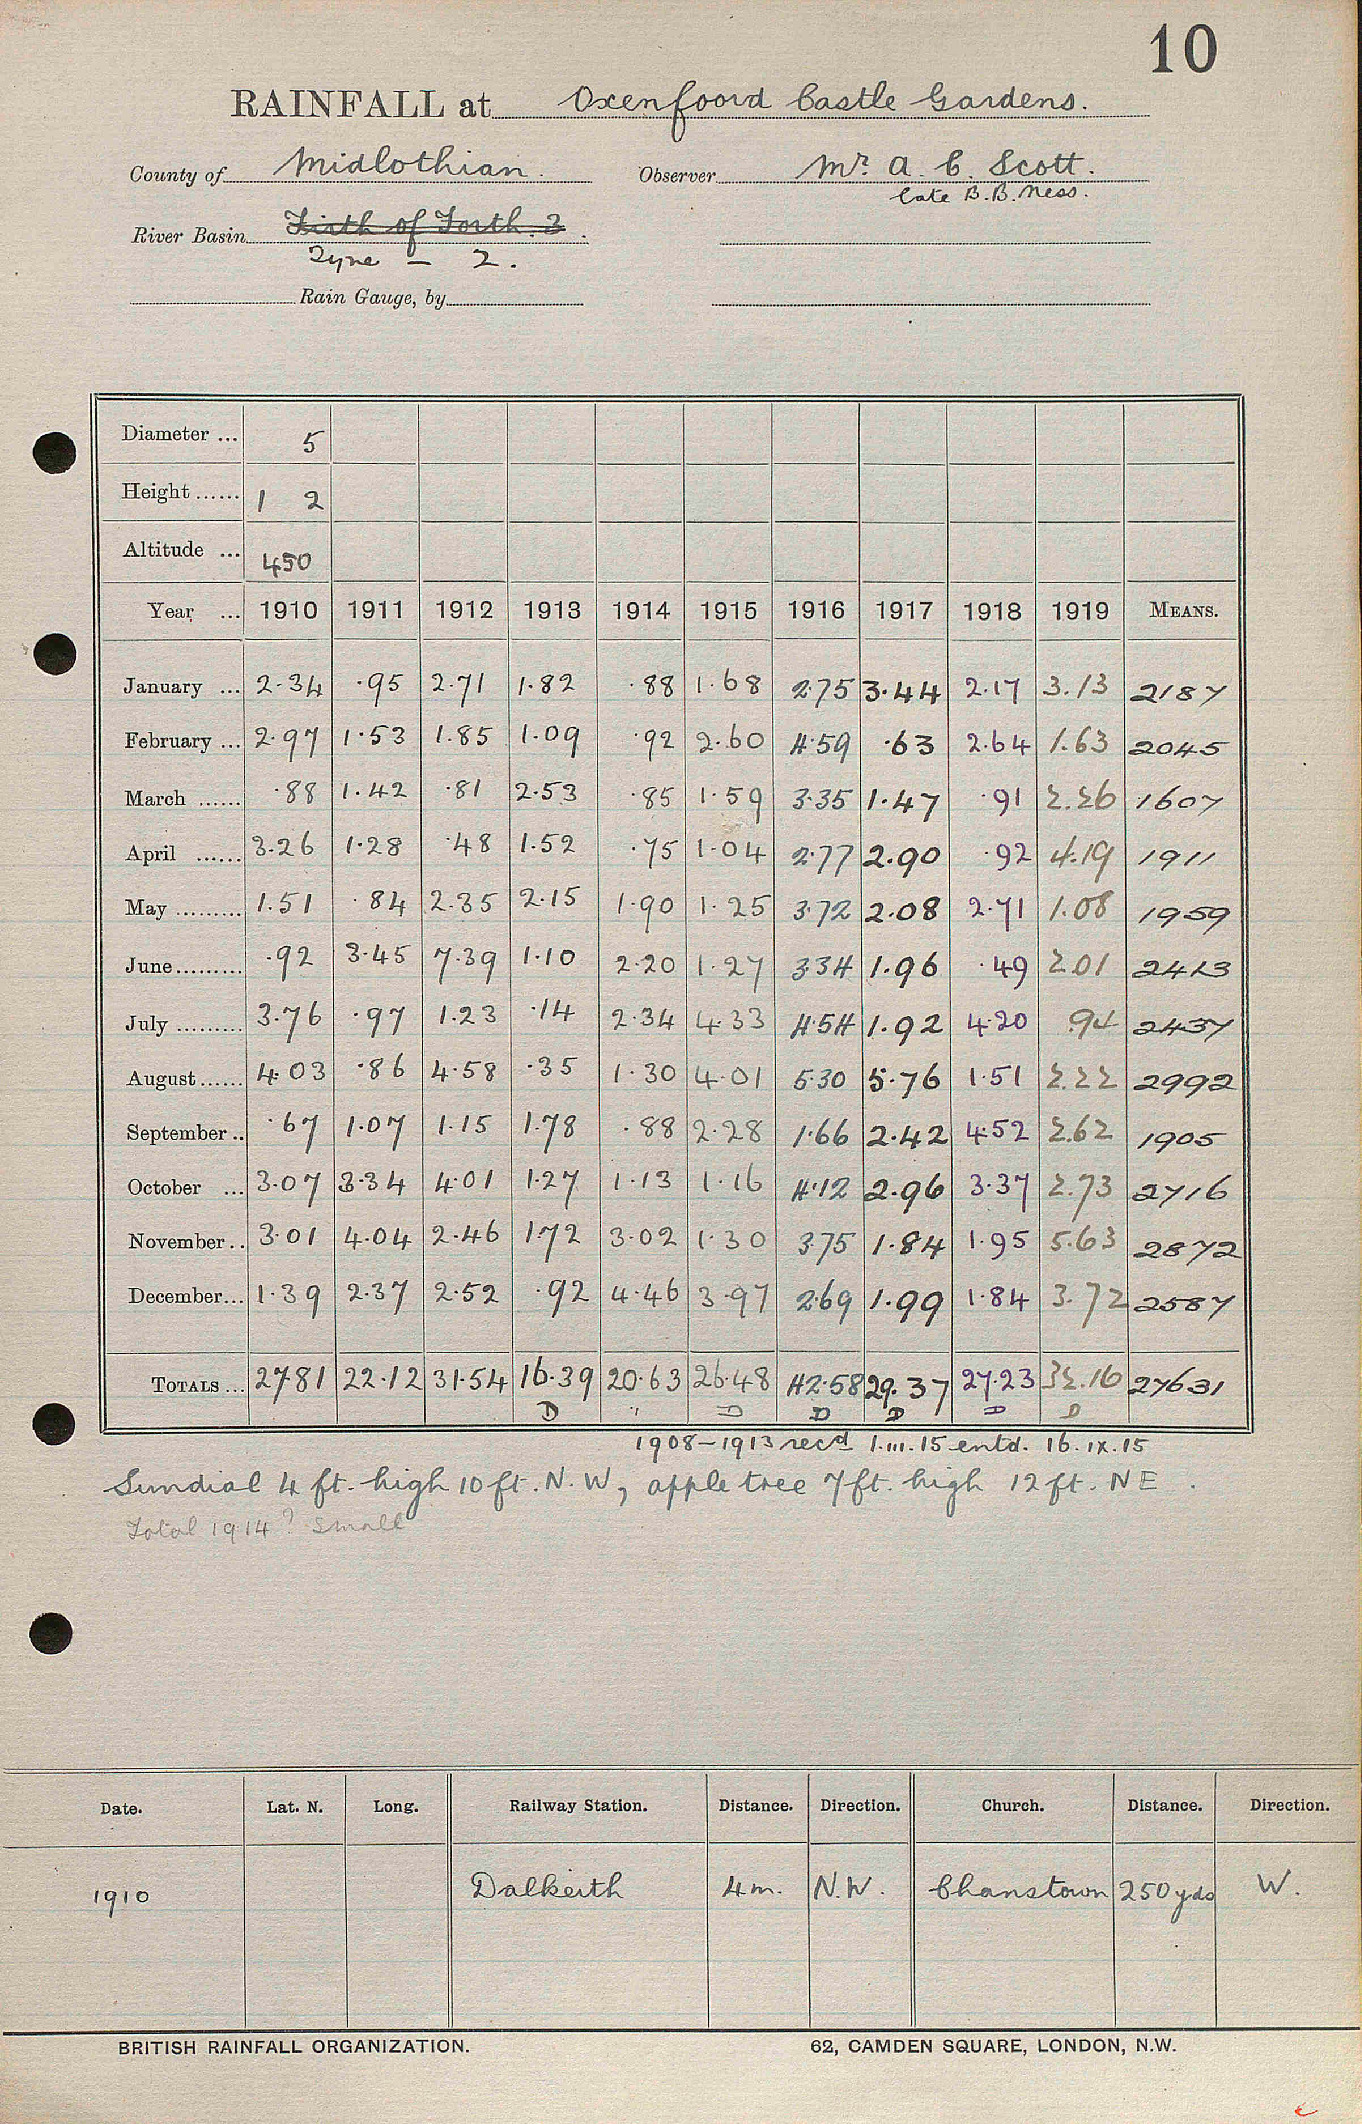 10
RAINFALL at Oxenfoord Castle Gardens.
County of Midlothian. Observer Mr. A. C. Scott.
late B.B. Ness.
River Basin Firth of Forth. 3.
Tyne — 2.
Rain Gauge, by
Diameter ... 5
Height ...... 1 2
Altitude ... 450
Year ... 1910 1911 1912 1913 1914 1915 1916 1917 1918 1919 MEANS.
January ... 2.34 .95 2.71 1.82 .88 1.68 2.75 3.44 2.17 3.13 2187
February ... 2.97 1.53 1.85 1.09 .92 2.60 4.59 .63 2.64 1.63 2045
March ...... .88 1.42 .81 2.53 .85 1.59 3.35 1.47 .91 2.26 1607
April ...... 3.26 1.28 .48 1.52 .75 1.04 2.77 2.90 .92 4.19 1911
May ......... 1.51 .84 2.35 2.15 1.90 1.25 3.72 2.08 2.71 1.08 1959
June......... .92 3.45 7.39 1.10 2.20 1.27 3.34 1.96 .49 2.01 2413
July ......... 3.76 .97 1.23 .14 2.34 4.33 4.54 1.92 4.20 .94 2437
August...... 4.03 .86 4.58 .35 1.30 4.01 5.30 5.76 1.51 2.22 2992
September .. .67 1.07 1.15 1.78 .88 2.28 1.66 2.42 4.52 2.62 1905
October ... 3.07 3.34 4.01 1.27 1.13 1.16 4.12 2.96 3.37 2.73 2716
November .. 3.01 4.04 2.46 1.72 3.02 1.30 3.75 1.84 1.95 5.63 2872
December... 1.39 2.37 2.52 .92 4.46 3.97 2.69 1.99 1.84 3.72 2587
TOTALS ... 27.81 22.12 31.54 16.39 20.63 26.48 42.58 29.37 27.23 32.16 27631
D " D D D D D
1908-1913 recd 1.III.15 entd. 16.IX.15
Sundial 4 ft. high 10 ft. N.W, apple tree 7 ft. high 12 ft. NE.
Total 1914? small
Date. Lat. N. Long. Railway Station. Distance. Direction. Church. Distance. Direction.
1910 Dalkeith 4 m. N.W. 250 yds W.
BRITISH RAINFALL ORGANIZATION. 62, CAMDEN SQUARE, LONDON, N.W.